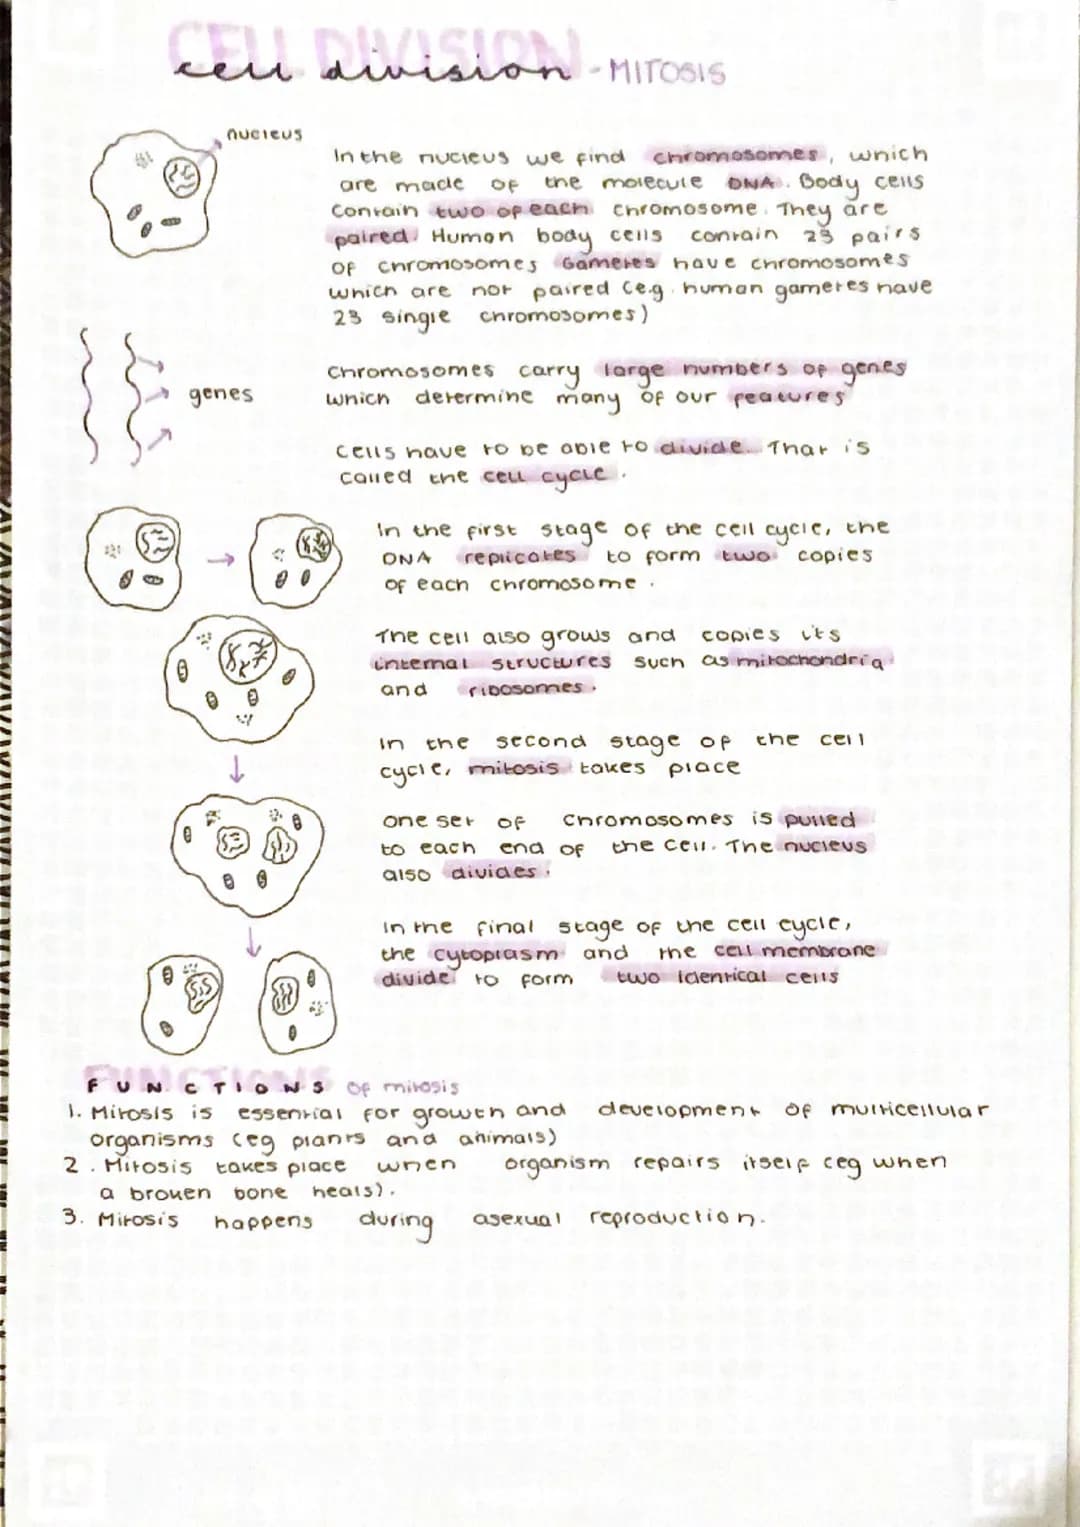 CELL DIVISION
cell division - MITOSIS
nucleus
In the nucleus we find chromosomes, which
are made of the molecule DNA. Body cells
contain two of each chromosome. They are
paired. Human body cells contain 23 pairs
of chromosomes Gametes have chromosomes
which are not paired (e.g. human gametes have
23 single chromosomes)
genes
Chromosomes carry large numbers of genes
which determine many of our features
Cells have to be able to divide. That is
called the cell cycle.
In the first stage of the cell cycle, the
DNA replicates to form two copies
of each chromosome.
The cell also grows and copies its
internal structures such as mitochondria
and ribosomes.
In the second stage of the cell
cycle, mitosis takes place
One set of chromosomes is pulled
to each end of the cell. The nucleus
also divides.
In the final stage of the cell cycle,
the cytoplasm and the cell membrane
divide to form two identical cells
FUNCTIONS
FUNCTIONS of mitosis
1. Mitosis is essential for growth and development of multicellular
organisms (eg plants and animals)
2. Mitosis takes place when organism repairs itself (eg when
a broken bone heals).
3. Mitosis happens during asexual reproduction.